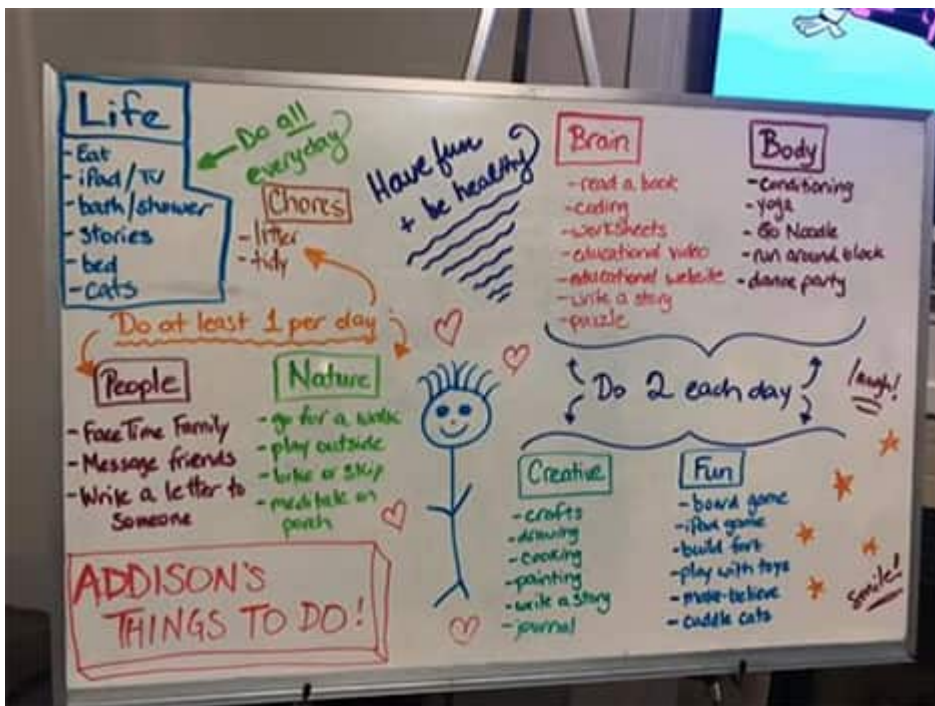 Life
- Eat
- iPad/TV
- bath/shower
- stories
- bed
- cats
Do all
everyday
Chores
- litter
- tidy
Have fun
+ be healthy
Brain
- read a book
- coding
- worksheets
- educational video
- educational website
- write a story
- puzzle
Body
- conditioning
- yoga
- Go Noodle
- run around block
- dance party
Do at least 1 per day
People
- FaceTime Family
- Message friends
- Write a letter to
someone
Nature
- go for a walk
- play outside
- bike or skip
- meditate on
porch
Do 2 each day
laugh!
Creative
- crafts
- drawing
- cooking
- painting
- write a story
- journal
Fun
- board game
- iPad game
- build fort
- play with toys
- make-believe
- cuddle cats
smile!
ADDISON'S
THINGS TO DO!